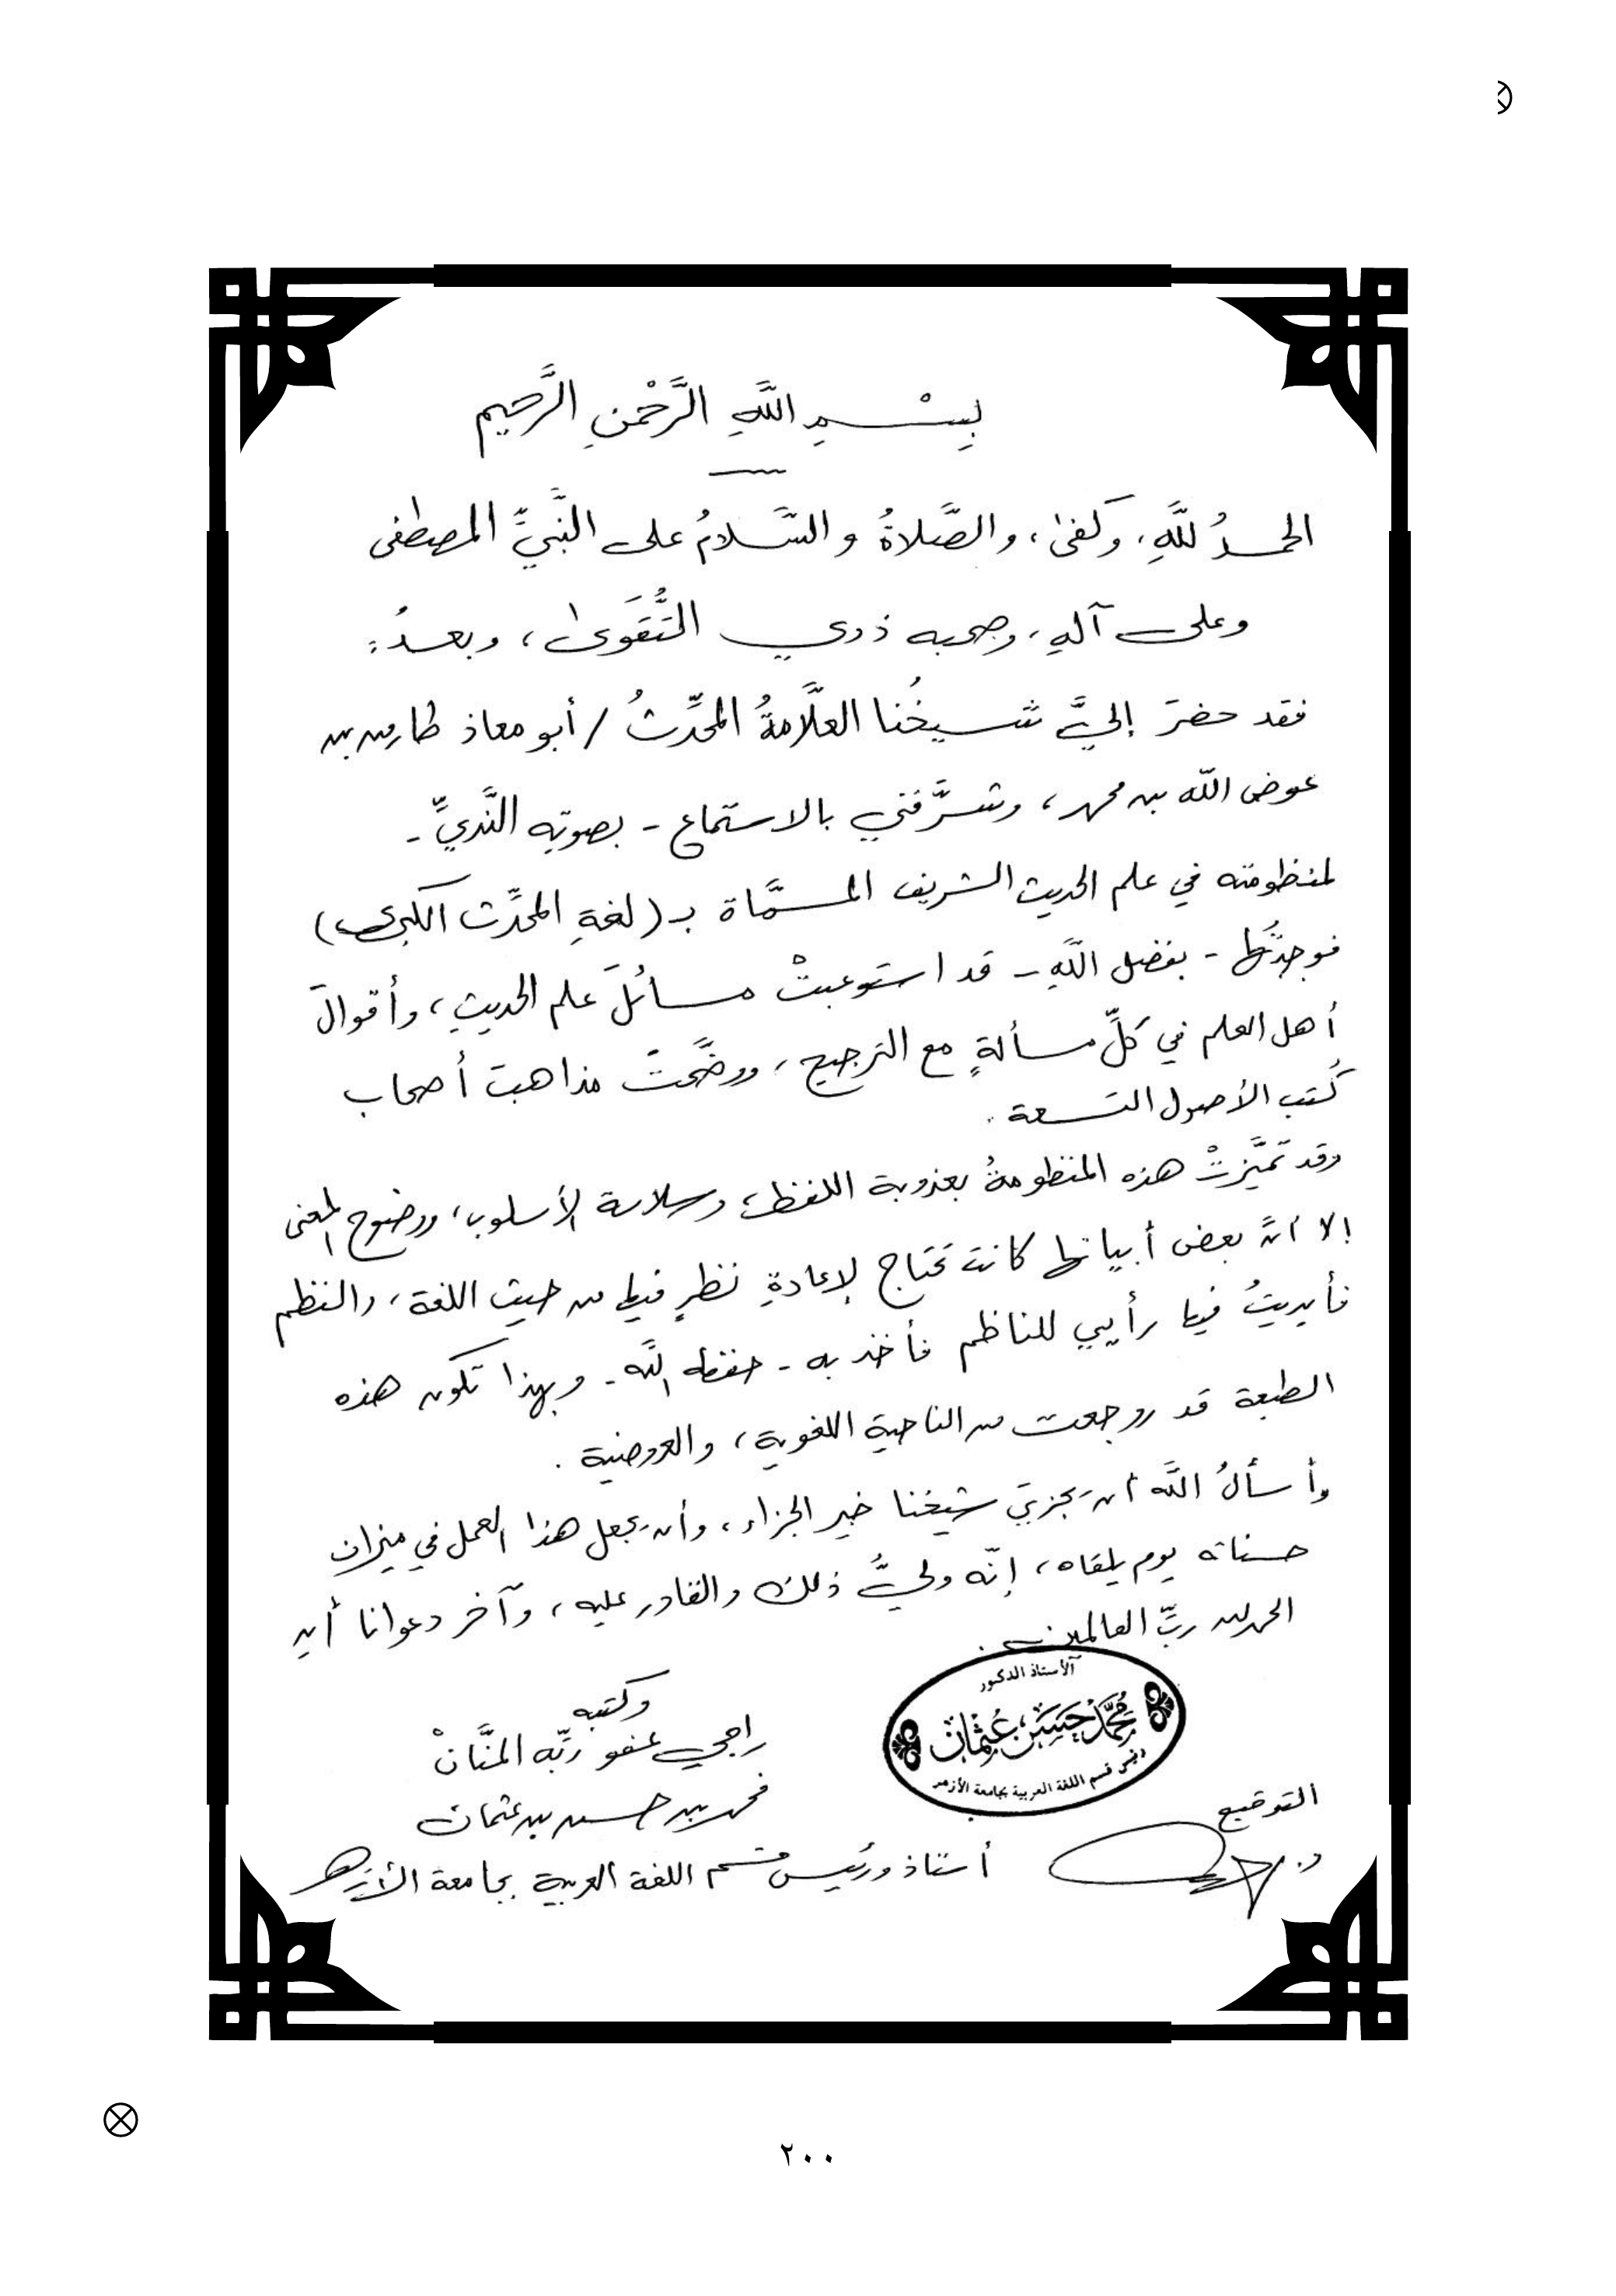 بِسْمِ اللَّهِ الرَّحْمنِ الرَّحيم
الحمدُ للَّهِ، وَكفىٰ، والصَّلاةُ والسَّلامُ على النَّبيِّ المصطفى
وعلى آلهِ، وصحبه ذوي التُّقَوىٰ، وبعدُ:
فقد حضرَ إليَّ شيخُنا العلَّامةُ المحدِّثُ / أبو معاذ طارق بن
عوض الله بن محمد، وشرَّفني بالاستماع - بصوتِه النَّديِّ -
لمنظومته في علم الحديث الشريف المسمَّاة بـ (لغةِ المحدِّث الكبرى)
فوجدتُها - بفضل اللَّهِ - قد استوعبتْ مسائلَ علم الحديثِ، وأقوالَ
أهل العلم في كلِّ مسألةٍ مع الترجيح، ووضَّحتْ مذاهبَ أصحاب
كُتب الأصول التسعة.
وقد تميَّزتْ هذه المنظومةُ بعذوبة اللفظ، وسلاسة الأسلوب، ووضوح المعنى
إلا أنَّ بعض أبياتها كانت تحتاج لإعادةِ نظرٍ فيها من حيث اللغة، والنظم
فأبديتُ فيها رأيي للناظم فأخذ به - حفظه اللَّه - وبهذا تكون هذه
الطبعة قد روجعت من الناحية اللغوية، والعروضية.
وأسألُ اللَّه أن يَجزيَ شيخنا خير الجزاء، وأن يجعل هذا العمل في ميزان
حسناته يوم يلقاه، إنّه وليُّ ذلك والقادر عليه، وآخر دعوانا أن
الحمد لله ربِّ العالمين.
الأستاذ الدكتور
مُحَمَّد حَسَن عُثمان
رئيس قسم اللغة العربية بجامعة الأزهر
وكتبه
راجي عفو ربِّه المنَّانْ
محمد بن حسن بن عثمان
أستاذ ورئيس قسم اللغة العربية بجامعة الأزهر
التوقيع
٢٠٠